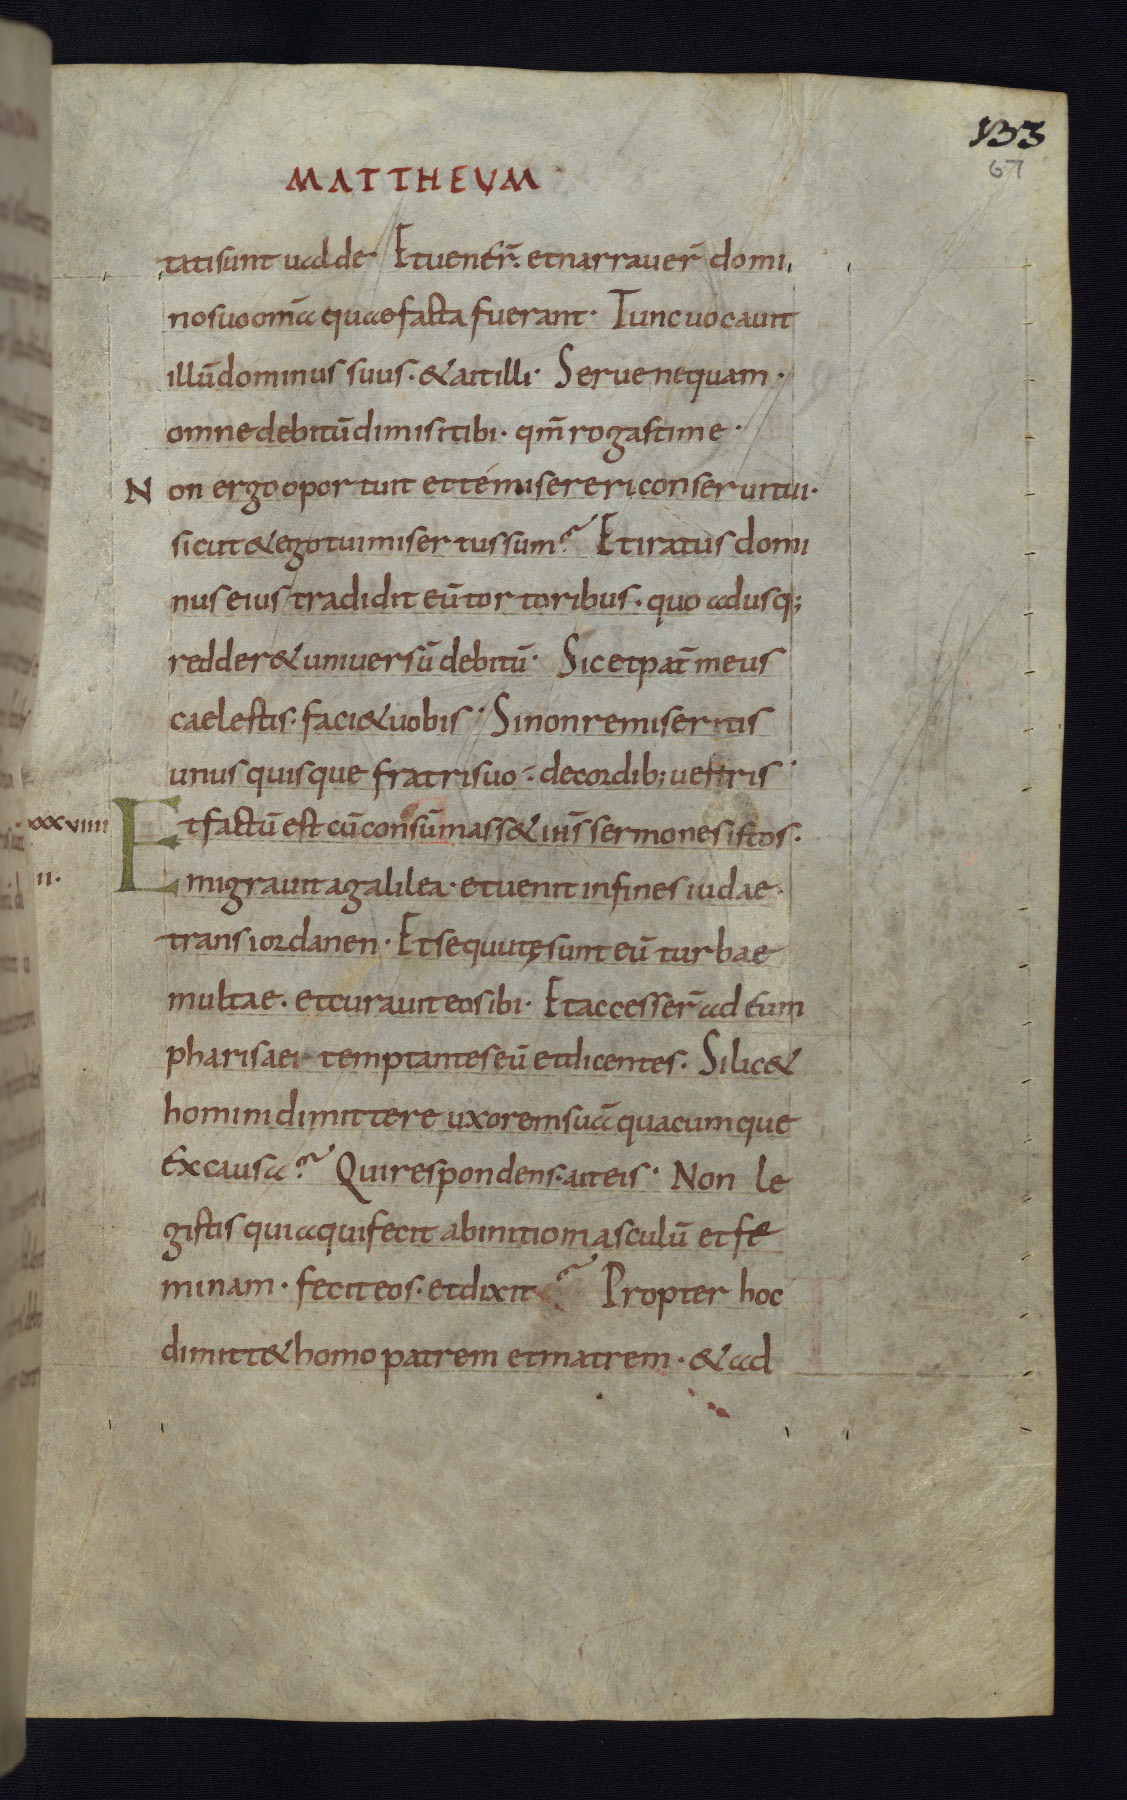 133
67
MATTHEUM
tati sunt ualde Et uener̄. et narrauer̄ domi
no suo om̄a quae facta fuerant· Tunc uocauit
illū dominus suus· & ait illi· Serue nequam·
omne debitū dimisi tibi· qm̄ rogasti me·
Non ergo oportuit et te misereri conserui tui·
sicut & ego tui misertus sum? Et iratus domi
nus eius tradidit eū tortoribus· quo adusq;
redder& uniuersū debitū· Sic et pat̄ meus
caelestis· faci& uobis· Si non remiseritis
unusquisque fratri suo· de cordib; uestris·
xxxviiii Et factū est cū consūmass& ih̄s sermones istos·
ii. migrauit a galilea· et uenit in fines iudae·
trans iordanen· Et sequutę sunt eū turbae
multae· et curauit eos ibi· Et accesser̄ ad eum
pharisaei temptantes eū et dicentes· Si lic&
homini dimittere uxorem suā quacumque
ex causa? Qui respondens· ait eis· Non le
gistis quia qui fecit ab initio masculū et fe
minam· fecit eos· et dixit? Propter hoc
dimitt& homo patrem et matrem· & ad